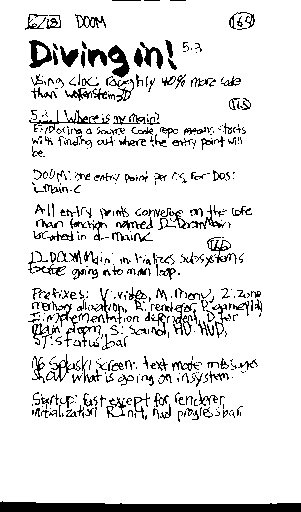 6/13 DOOM 164
Diving in! 5.3
Using cloc: roughly 40% more code
than Wolfenstein 3D
165
5.3.1 Where is my main?
Exploring a source code repo means starts
with finding out where the entry point will
be.
DOOM: one entry point per OS, for DOS:
i_main.c
All entry points converge on the core
main function named D_DoomMain
located in d_main.c
166
D_DOOMMain: initializes subsystems
before going into main loop.
Prefixes: V: video, M: menu, Z: zone
memory allocation, R: renderer, P: game
I: implementation dependent, D for
Main doom, S: Sound, HU: HUD,
ST: status bar
No Splash Screen: text mode messages
show what is going on in system.
Startup: fast except for renderer
initialization R_Init, had progress bar